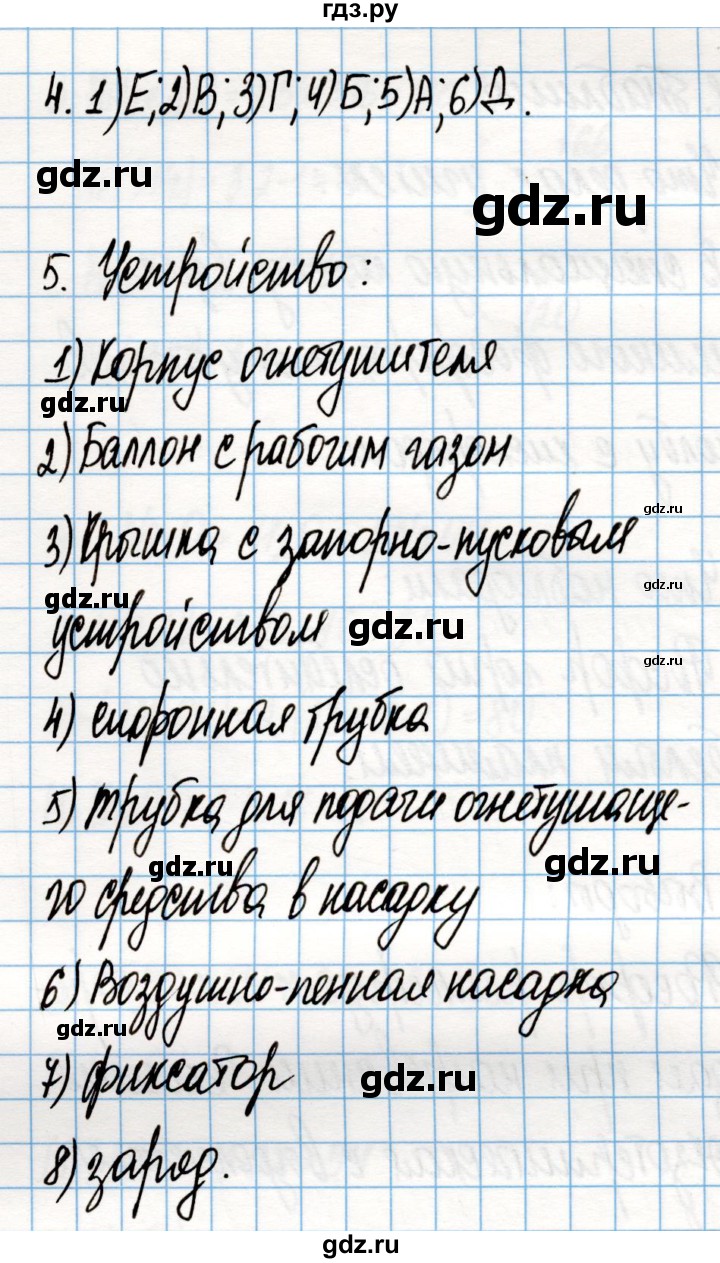 гдз.ру
4. 1)Е; 2)В; 3)Г; 4)Б; 5)А; 6)Д.
gdz.ru
gdz.ru
5. Устройство:
1) Корпус огнетушителя
gdz.ru
2) Баллон с рабочим газон
gdz.ru
3) Крышка с запорно-пусковым
gdz.ru
gdz.ru
устройством
gdz.ru
gdz.ru
4) сифонная трубка
5) трубка для подачи огнетушаще-
gdz.ru
gdz.ru
го средства в насадку
6) Воздушно-пенная насадка
gdz.ru
7) фиксатор
gdz.ru
8) заряд.
gdz.ru